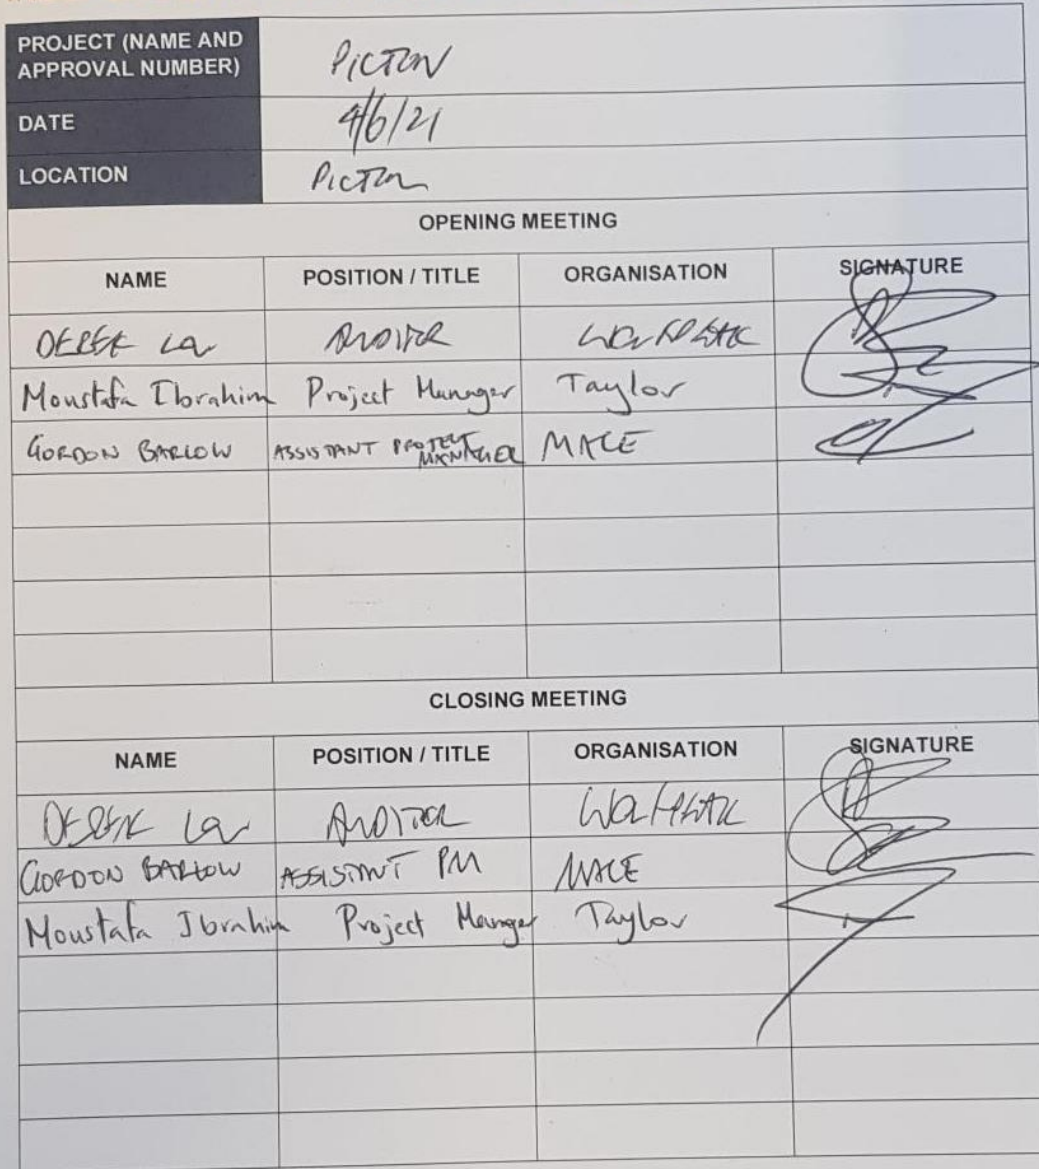 PROJECT (NAME AND APPROVAL NUMBER) PICTON
DATE 4/6/21
LOCATION PICTON
OPENING MEETING
NAME POSITION / TITLE ORGANISATION SIGNATURE
DEREK AUDITOR
Moustafa Ibrahim Project Manager Taylor
GORDON BARLOW ASSISTANT PROJECT MANAGER MACE
CLOSING MEETING
NAME POSITION / TITLE ORGANISATION SIGNATURE
DEREK AUDITOR
GORDON BARLOW ASSISTANT PM MACE
Moustafa Ibrahim Project Manager Taylor